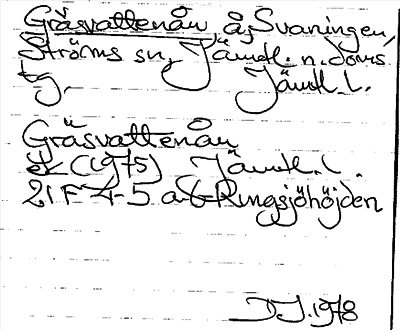 Gråsvattenån å, Svaningen,
Ströms sn, Jämtl. n. doms.
tg. Jämtl. l.
Gråsvattenån
ek (1975) Jämtl. l.
21F 4-5 a-b Rungsjöhöjden
DJ. 1978